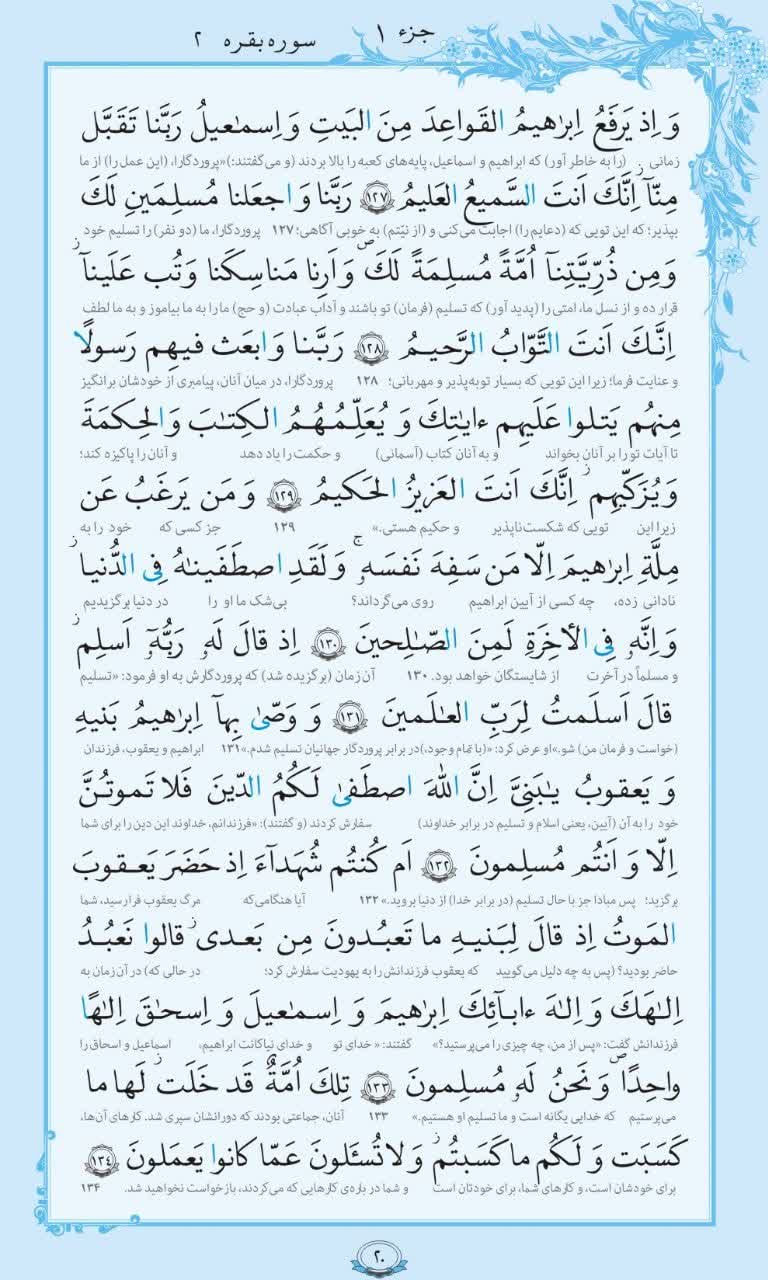 جزء ۱
سوره بقره ۲
وَ اِذ يَرفَعُ اِبراهيمُ القَواعِدَ مِنَ البَيتِ وَ اِسماعيلُ رَبَّنا تَقَبَّل
زمانی (را به خاطر آور) که ابراهیم و اسماعیل، پایه‌های کعبه را بالا بردند (و می‌گفتند:)«پروردگارا، (این عمل را) از ما
مِنّآ اِنَّكَ اَنتَ السَّميعُ العَليمُ ﴿۱۲۷﴾ رَبَّنا وَ اجعَلنا مُسلِمَينِ لَكَ
بپذیر؛ که این تویی که (دعایم را) اجابت می‌کنی و (از نیّتم) به خوبی آگاهی؛ ۱۲۷ پروردگارا، ما (دو نفر) را تسلیم خود
وَ مِن ذُرِّيَّتِنآ اُمَّةً مُسلِمَةً لَكَ ۖ وَ اَرِنا مَناسِكَنا وَ تُب عَلَينآ ۖ
قرار ده و از نسل ما، امتی را (پدید آور) که تسلیم (فرمان) تو باشند و آداب عبادت (و حج) ما را به ما بیاموز و به ما لطف
اِنَّكَ اَنتَ التَّوّابُ الرَّحيمُ ﴿۱۲۸﴾ رَبَّنا وَ ابعَث فيهِم رَسولًا
و عنایت فرما؛ زیرا این تویی که بسیار توبه‌پذیر و مهربانی؛ ۱۲۸ پروردگارا، در میان آنان، پیامبری از خودشان برانگیز
مِنهُم يَتلوا عَلَيهِم ءاياتِكَ وَ يُعَلِّمُهُمُ الكِتابَ وَ الحِكمَةَ
تا آیات تو را بر آنان بخواند و به آنان کتاب (آسمانی) و حکمت را یاد دهد و آنان را پاکیزه کند؛
وَ يُزَكّيهِم ۚ اِنَّكَ اَنتَ العَزيزُ الحَكيمُ ﴿۱۲۹﴾ وَ مَن يَرغَبُ عَن
زیرا این تویی که شکست‌ناپذیر و حکیم هستی.» ۱۲۹ جز کسی که خود را به
مِلَّةِ اِبراهيمَ اِلّا مَن سَفِهَ نَفسَهُ ۚ وَ لَقَدِ اصطَفَيناهُ فِي الدُّنيا ۖ
نادانی زده، چه کسی از آیین ابراهیم روی می‌گرداند؟ بی‌شک ما او را در دنیا برگزیدیم
وَ اِنَّهُ فِي الأخِرَةِ لَمِنَ الصّالِحينَ ﴿۱۳۰﴾ اِذ قالَ لَهُ رَبُّهُ اَسلِم ۖ
و مسلماً در آخرت از شایستگان خواهد بود. ۱۳۰ آن زمان (برگزیده شد) که پروردگارش به او فرمود: «تسلیم
قالَ اَسلَمتُ لِرَبِّ العالَمينَ ﴿۱۳۱﴾ وَ وَصّىٰ بِهآ اِبراهيمُ بَنيهِ
(خواست و فرمان من) شو.»او عرض کرد: «(با تمام وجود،)در برابر پروردگار جهانیان تسلیم شدم.»۱۳۱ ابراهیم و یعقوب، فرزندان
وَ يَعقوبُ يا بَنِيَّ اِنَّ اللّٰهَ اصطَفىٰ لَكُمُ الدّينَ فَلا تَموتُنَّ
خود را به آن (آیین، یعنی اسلام و تسلیم در برابر خداوند) سفارش کردند (و گفتند): «فرزندانم، خداوند این دین را برای شما
اِلّا وَ اَنتُم مُسلِمونَ ﴿۱۳۲﴾ اَم كُنتُم شُهَدآءَ اِذ حَضَرَ يَعقوبَ
برگزید؛ پس مبادا جز با حال تسلیم (در برابر خدا) از دنیا بروید.» ۱۳۲ آیا هنگامی‌که مرگ یعقوب فرا رسید، شما
المَوتُ اِذ قالَ لِبَنيهِ ما تَعبُدونَ مِن بَعدى ۖ قالوا نَعبُدُ
حاضر بودید؟ (پس به چه دلیل می‌گویید که یعقوب فرزندانش را به یهودیت سفارش کرد؛ در حالی که) در آن زمان به
اِلٰهَكَ وَ اِلٰهَ ءابآئِكَ اِبراهيمَ وَ اِسماعيلَ وَ اِسحاقَ اِلٰهًا
فرزندانش گفت: «پس از من، چه چیزی را می‌پرستید؟» گفتند: «خدای تو و خدای نیاکانت ابراهیم، اسماعیل و اسحاق را
واحِدًا ۖ وَ نَحنُ لَهُ مُسلِمونَ ﴿۱۳۳﴾ تِلكَ اُمَّةٌ قَد خَلَت ۖ لَها ما
می‌پرستیم که خدایی یگانه است و ما تسلیم او هستیم.» ۱۳۳ آنان، جماعتی بودند که دورانشان سپری شد. کارهای آن‌ها،
كَسَبَت وَ لَكُم ما كَسَبتُم ۖ وَ لا تُسئَلونَ عَمّا كانوا يَعمَلونَ ﴿۱۳۴﴾
برای خودشان است، و کارهای شما، برای خودتان است و شما در باره‌ی کارهایی که می‌کردند، بازخواست نخواهید شد. ۱۳۴
۲۰